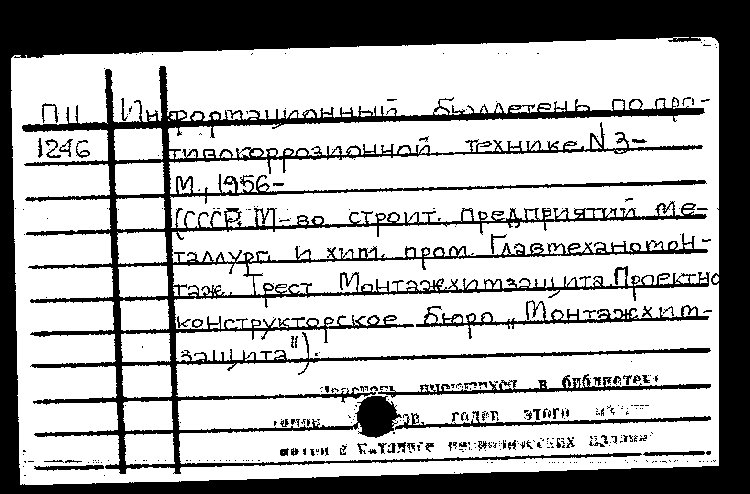 П11 Информационный бюллетень по про-
1246 тивокоррозионной технике. N 3-
М., 1956-
(СССР. М-во строит. предприятий ме-
таллург. и хим. пром. Главтехмонтаж-
таж. Трест Монтажхимзащита. Проектно
конструкторское бюро „Монтажхим-
защита").
Перечень имеющихся в библиотеке
годов этого
в каталоге периодических изданий